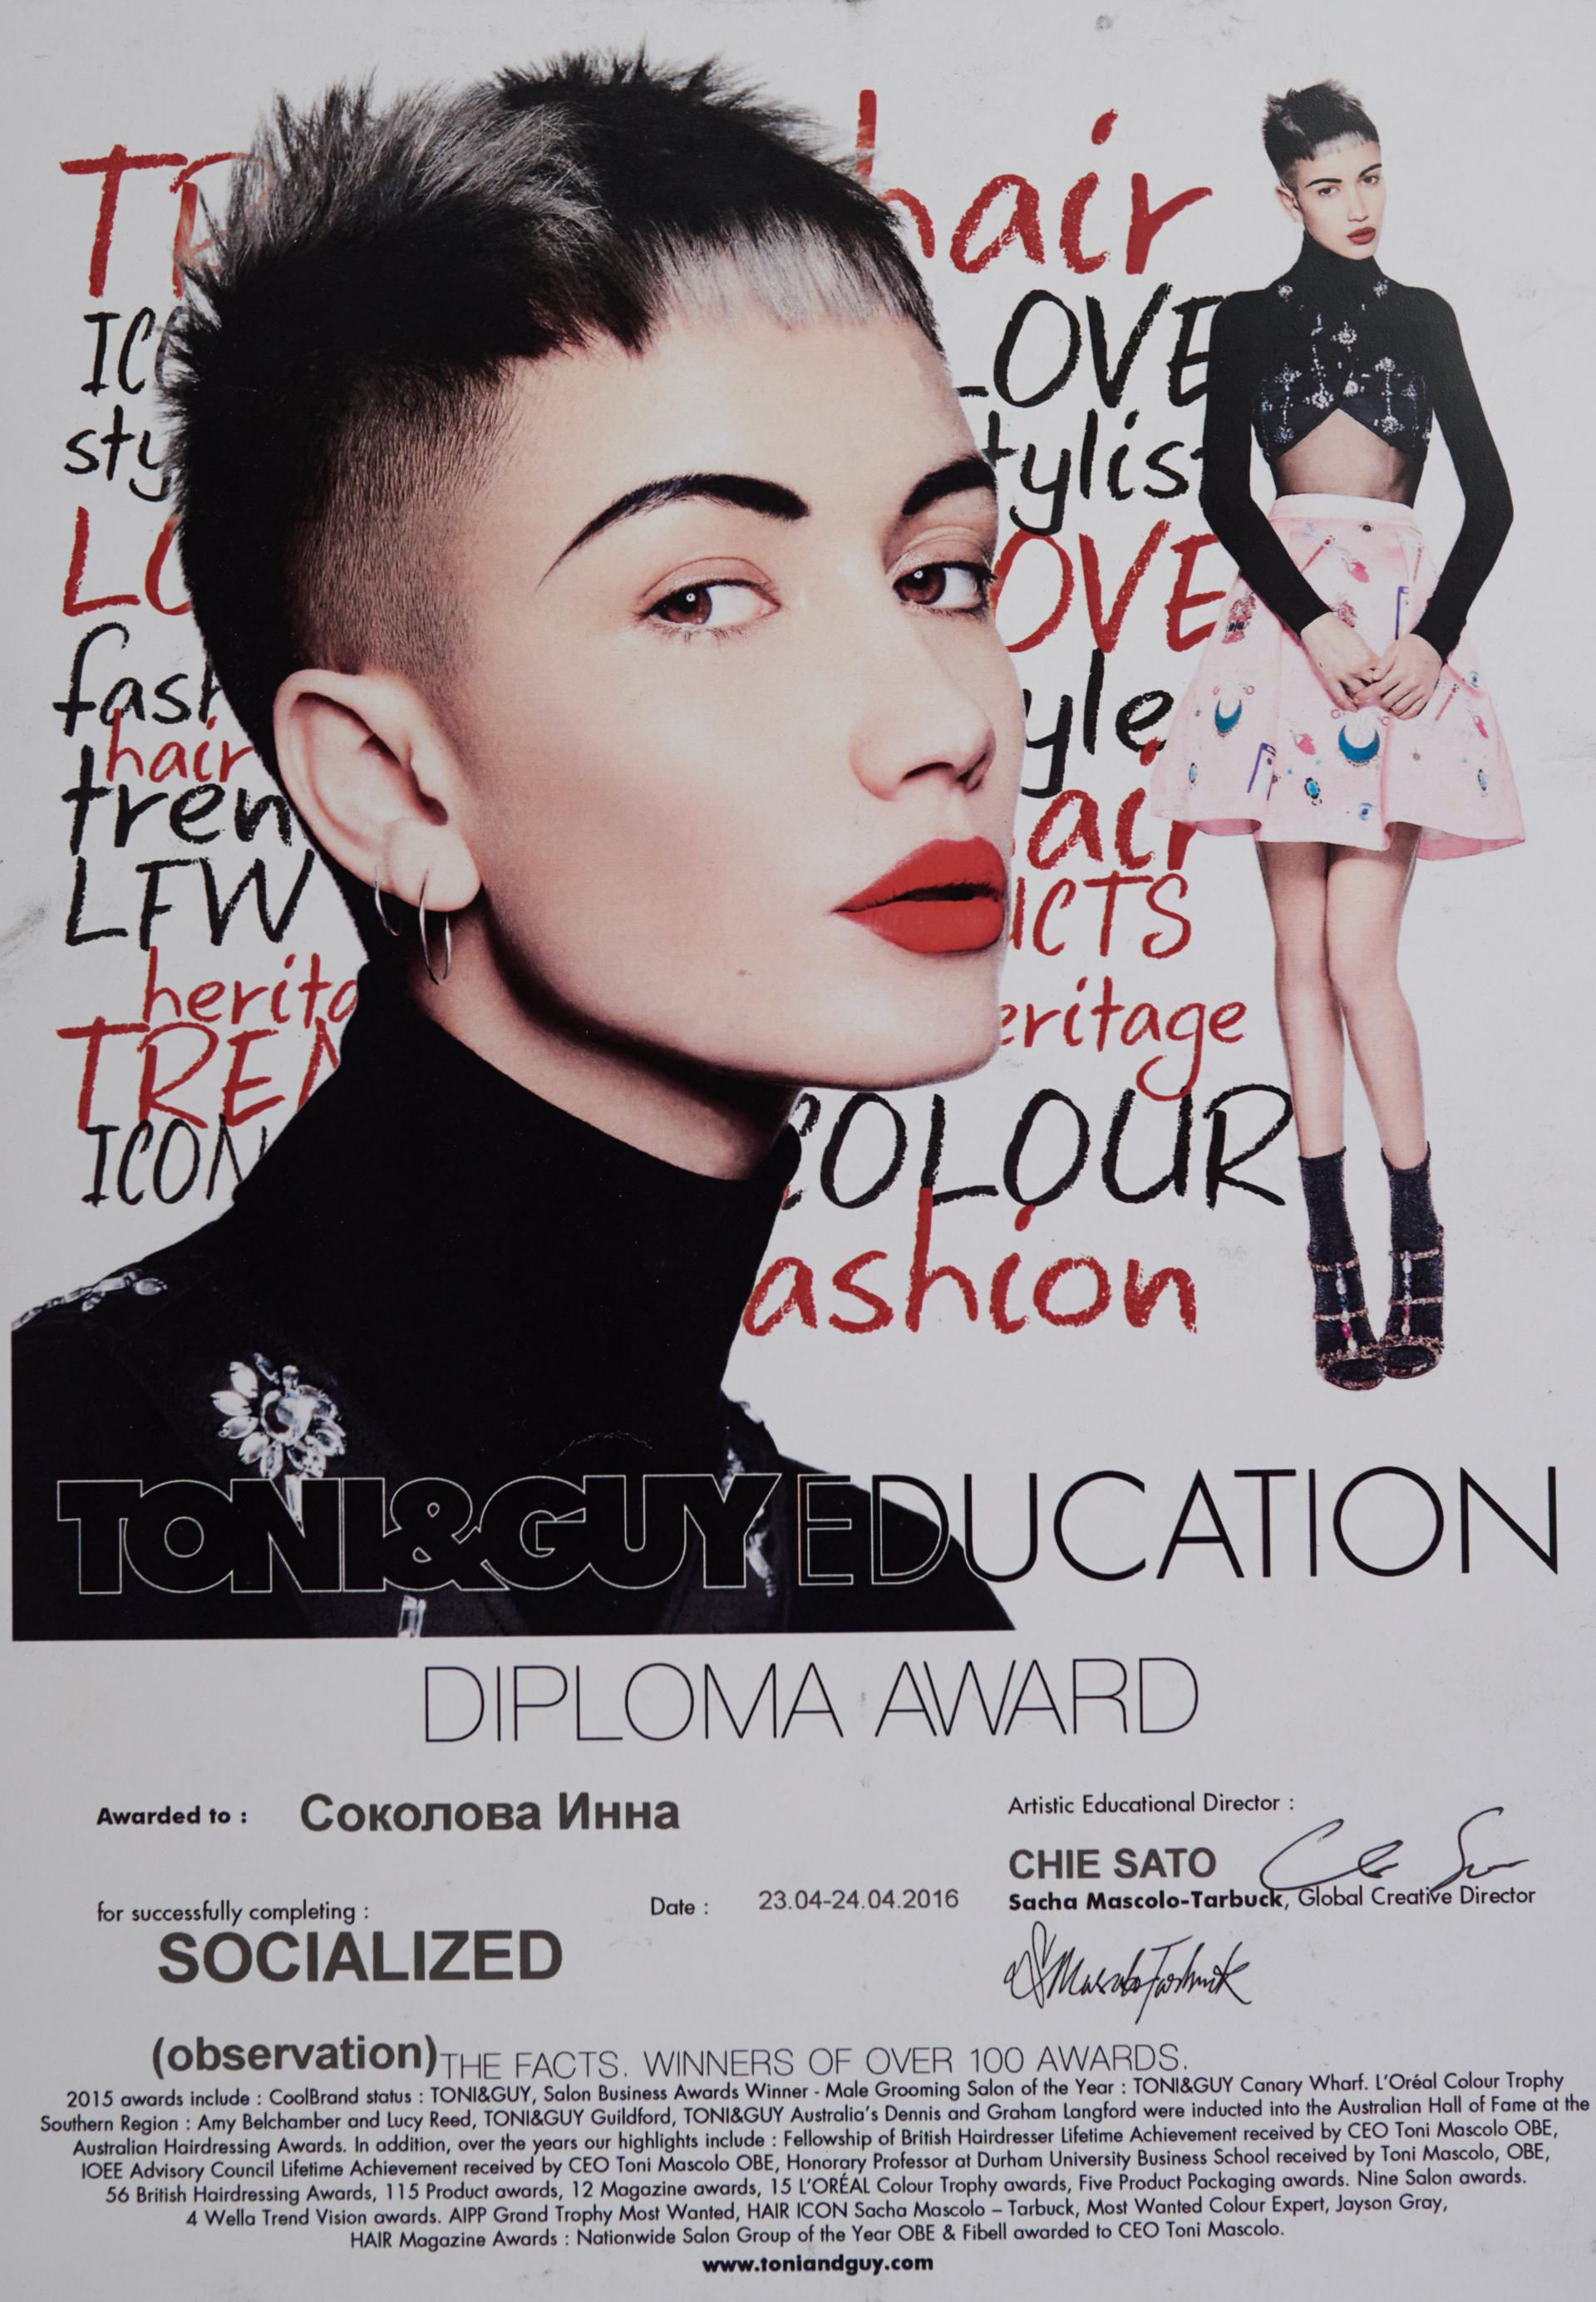 hair
LOVE
stylist
LOVE
style
fash
hair
hair
tren
LFW
ICTS
herita
heritage
TREN
ICON
COLOUR
fashion
TONI&GUY EDUCATION
DIPLOMA AWARD
Awarded to : Соколова Инна
Artistic Educational Director :
CHIE SATO
Sacha Mascolo-Tarbuck, Global Creative Director
for successfully completing :
Date : 23.04-24.04.2016
SOCIALIZED
(observation) THE FACTS. WINNERS OF OVER 100 AWARDS.
2015 awards include : CoolBrand status : TONI&GUY, Salon Business Awards Winner - Male Grooming Salon of the Year : TONI&GUY Canary Wharf. L'Oréal Colour Trophy
Southern Region : Amy Belchamber and Lucy Reed, TONI&GUY Guildford, TONI&GUY Australia's Dennis and Graham Langford were inducted into the Australian Hall of Fame at the
Australian Hairdressing Awards. In addition, over the years our highlights include : Fellowship of British Hairdresser Lifetime Achievement received by CEO Toni Mascolo OBE,
IOEE Advisory Council Lifetime Achievement received by CEO Toni Mascolo OBE, Honorary Professor at Durham University Business School received by Toni Mascolo, OBE,
56 British Hairdressing Awards, 115 Product awards, 12 Magazine awards, 15 L'ORÉAL Colour Trophy awards, Five Product Packaging awards. Nine Salon awards.
4 Wella Trend Vision awards. AIPP Grand Trophy Most Wanted, HAIR ICON Sacha Mascolo – Tarbuck, Most Wanted Colour Expert, Jayson Gray,
HAIR Magazine Awards : Nationwide Salon Group of the Year OBE & Fibell awarded to CEO Toni Mascolo.
www.toniandguy.com